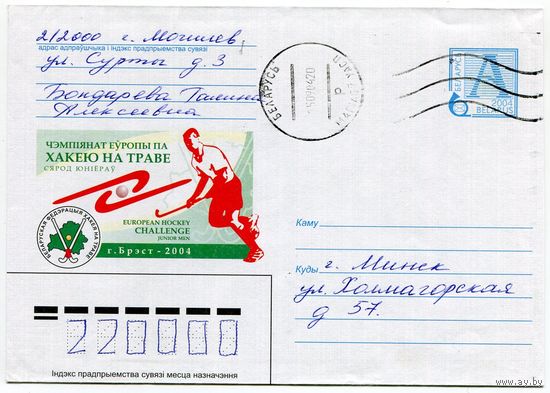 212000 г. Могилев
адрас адпраўшчыка і індэкс прадпрыемства сувязі
ул. Сурты д. 3
Бондарева Галина
Алексеевна
БЕЛАРУСЬ
БЕЛАРУСЬ
А
2004
BELARUS
ЧЭМПІЯНАТ ЕЎРОПЫ ПА
ХАКЕЮ НА ТРАВЕ
СЯРОД ЮНІЁРАЎ
EUROPEAN HOCKEY
CHALLENGE
JUNIOR MEN
БЕЛАРУСКАЯ ФЕДЭРАЦЫЯ ХАКЕЯ НА ТРАВЕ
г. Брэст - 2004
Каму
Куды г. Минск
ул. Холмагорская
д 57.
220000
Індэкс прадпрыемства сувязі месца назначэння
www.ay.by